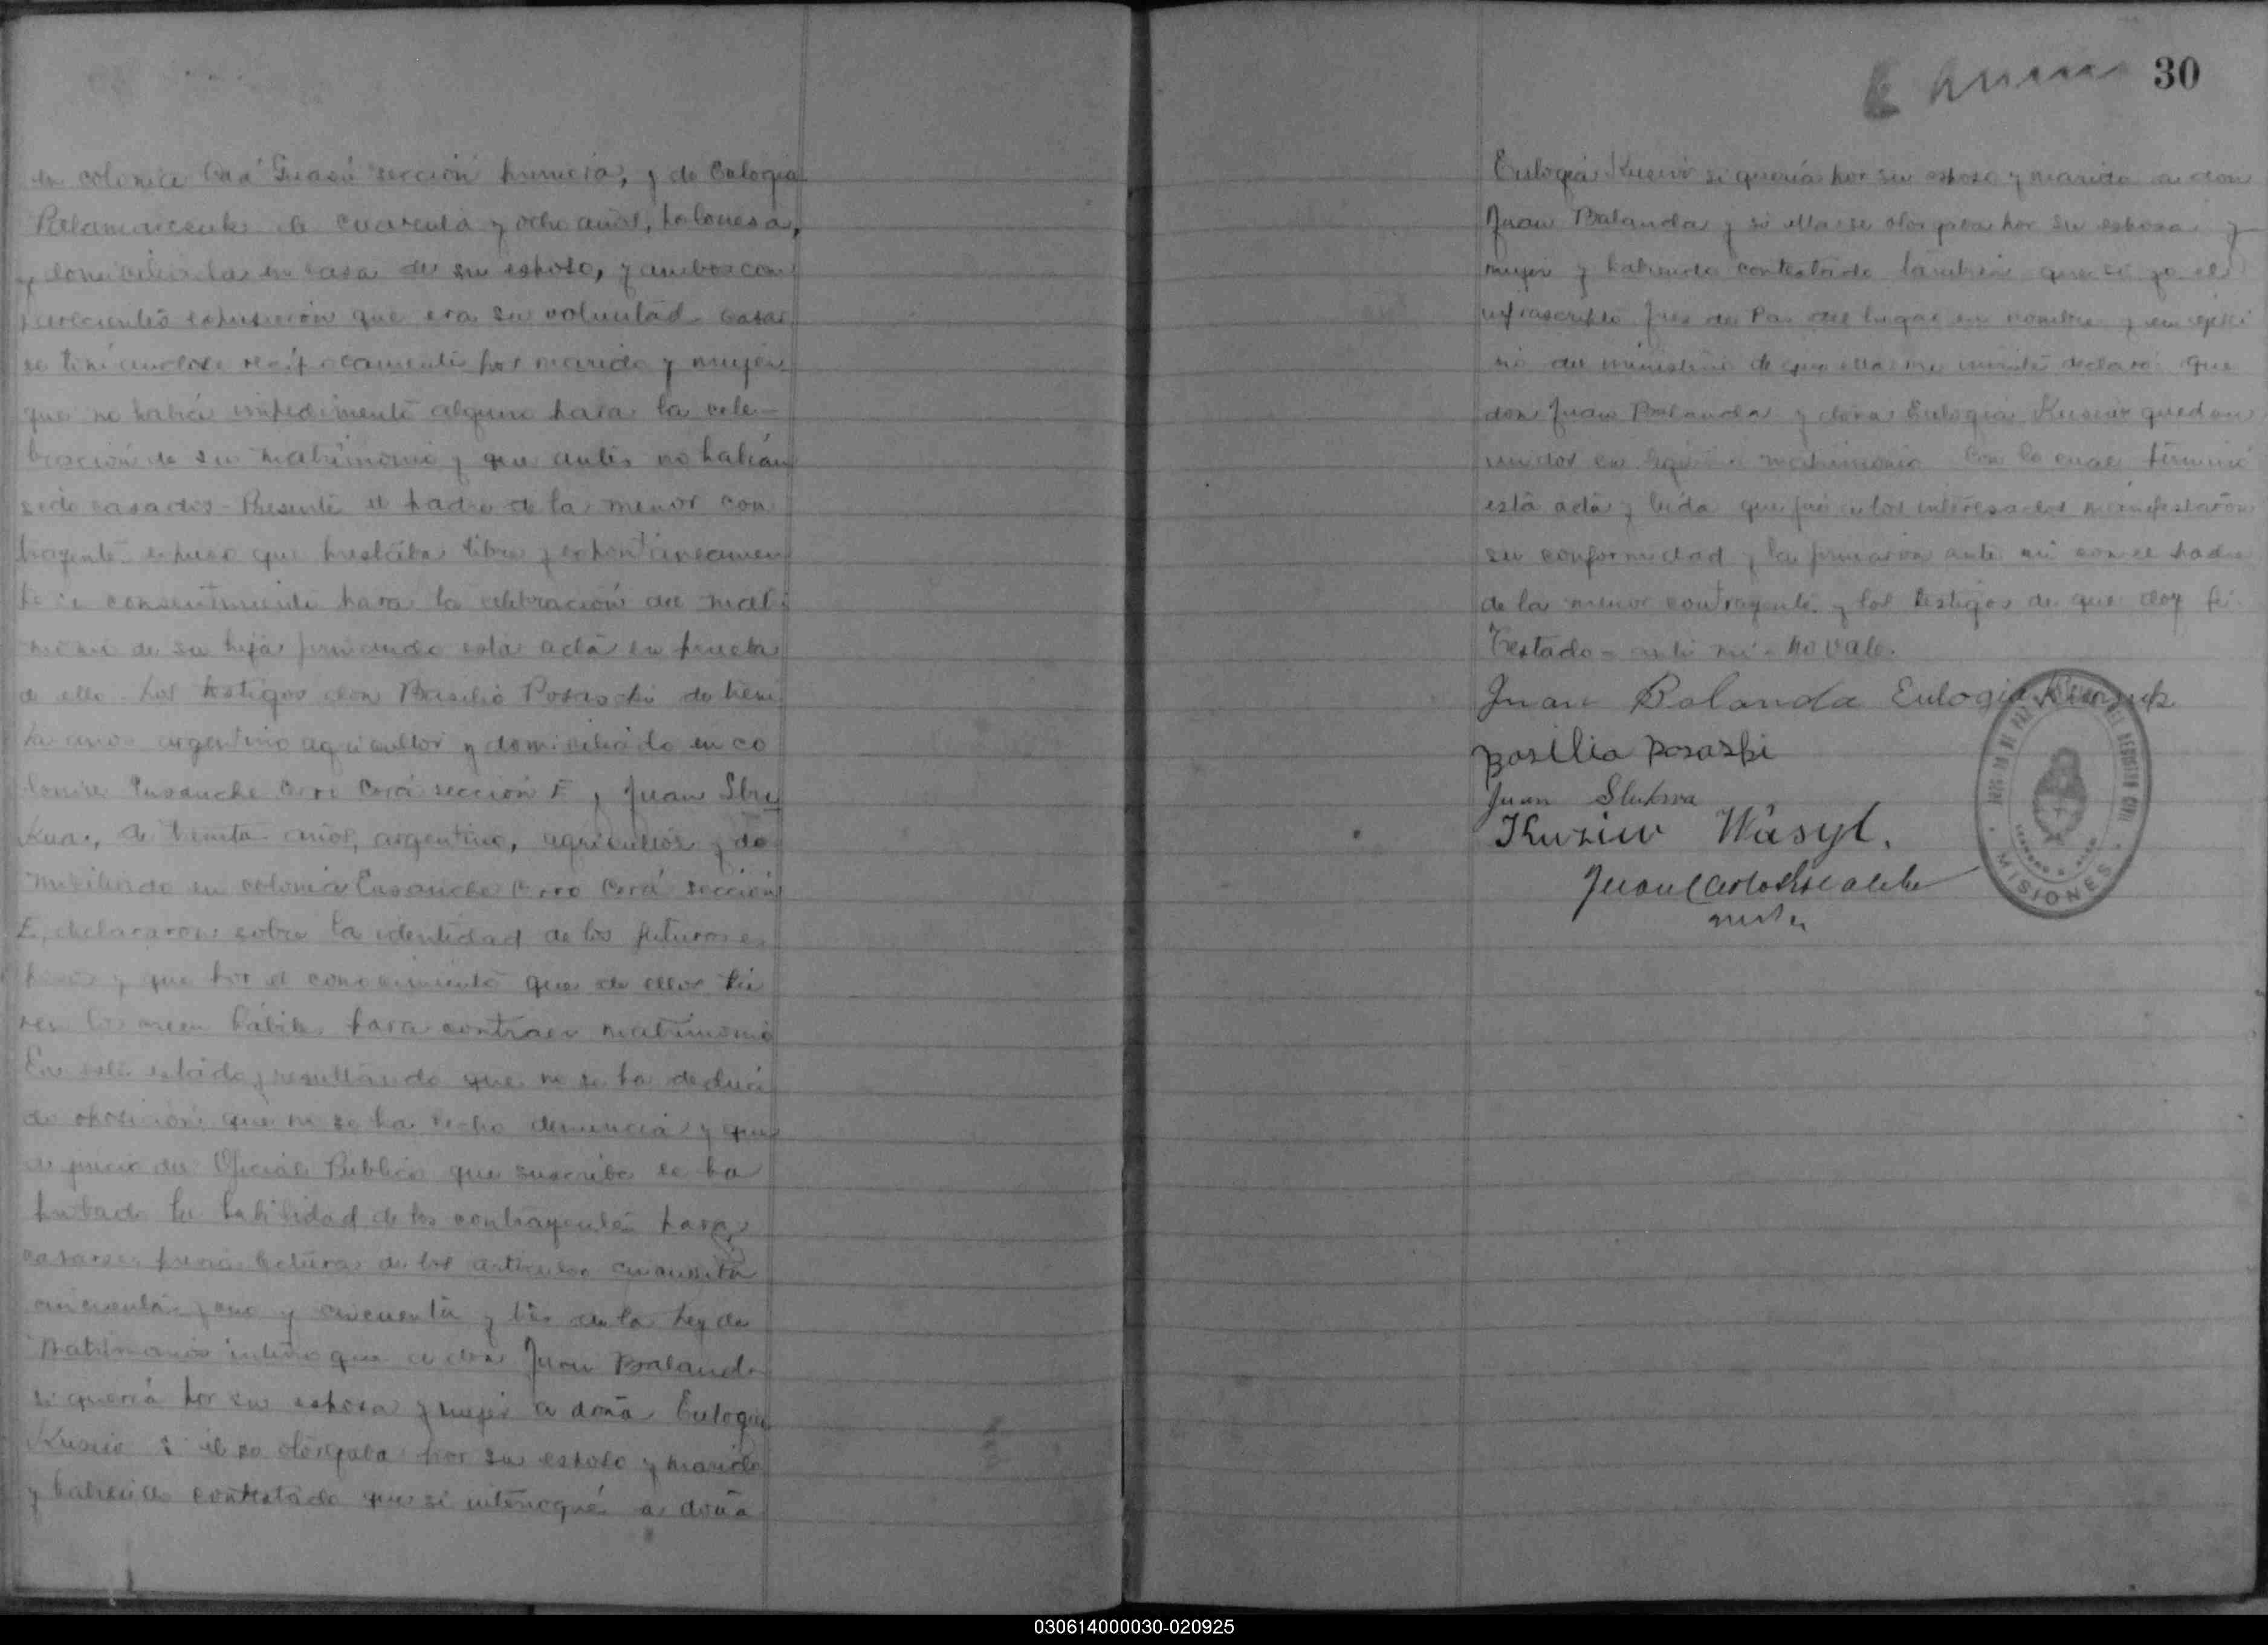 en colonia Caá Guazú sección primera, y de Eulogia
Palamarcenk de cuarenta y ocho años, polonesa,
y domiciliada en casa de su esposo, y ambos com
parecientes expusieron que era su voluntad casar
se teniendose recíprocamente por marido y mujer
que no había impedimento alguno para la cele-
bración de su matrimonio y que antes no habían
sido casados - Presente el padre de la menor con
trayente expuso que prestaba libre y espontáneamen
te su consentimiento para la celebración del matri
monio de su hija firmando esta acta en prueba
de ello. Los testigos don Basilio Posaski de trein
ta años argentino agricultor y domiciliado en co
lonia Ensanche Cerro Corá sección E y Juan Slu
kua, de treinta años, argentino, agricultor y do
miciliado en colonia Ensanche Cerro Corá sección
E, declararon sobre la identidad de los futuros es
posos y que por el conocimiento que de ellos tie
nen los creen hábiles para contraer matrimonio
En este estado y resultando que no se ha deduci
do oposición que no se ha hecho denuncia y que
a juicio del Oficial Público que suscribe se ha
probado la habilidad de los contrayentes para
casarse, previa lectura de los artículos cincuenta
cincuenta y uno y cincuenta y tres de la Ley de
Matrimonio interrogué a don Juan Balanda
si quería por su esposa y mujer a doña Eulogia
Kusiw si él se otorgaba por su esposo y marido
y habiendo contestado que si interrogué a doña
30
Eulogia Kusiw si quería por su esposo y marido a don
Juan Balanda y si ella se otorgaba por su esposa y
mujer y habiendo contestado también que si yo el
infrascripto Juez de Paz del lugar en nombre y en ejerci
cio del ministerio de que ella me inviste declaro que
don Juan Balanda y doña Eulogia Kusiw quedan
unidos en legítimo matrimonio Con lo cual terminó
esta acta y leída que fué a los interesados manifestaron
su conformidad y la firmaron ante mi con el padre
de la menor contrayente y los testigos de que doy fé.
Testado = ante mi = no vale.
Juan Balanda Eulogia
Basilio Posaski
Juan Slukua
Kuziw Wasyl.
Juan Carlos
JUZGADO DE PAZ DEL REGISTRO CIVIL
MISIONES
030614000030-020925